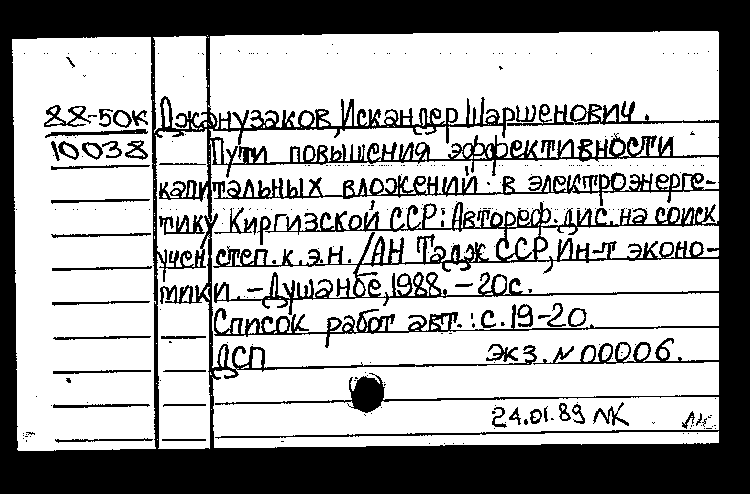 88-50К Джанузаков, Искандер Шаршенович.
10038 Пути повышения эффективности
капитальных вложений в электроэнерге-
тику Киргизской ССР: Автореф. дис. на соиск.
учен. степ. к.э.н. / АН Тадж ССР, Ин-т эконо-
мики. - Душанбе, 1988. - 20с.
Список работ авт.: с.19-20.
ДСП экз. N 00006.
24.01.89 NК